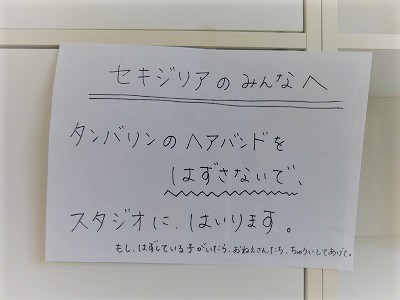 セキジリアのみんなへ
タンバリンのヘアバンドを
はずさないで、
スタジオに、はいります。
もし、はずしている子がいたら、おねえさんたち、ちゅういしてあげて。